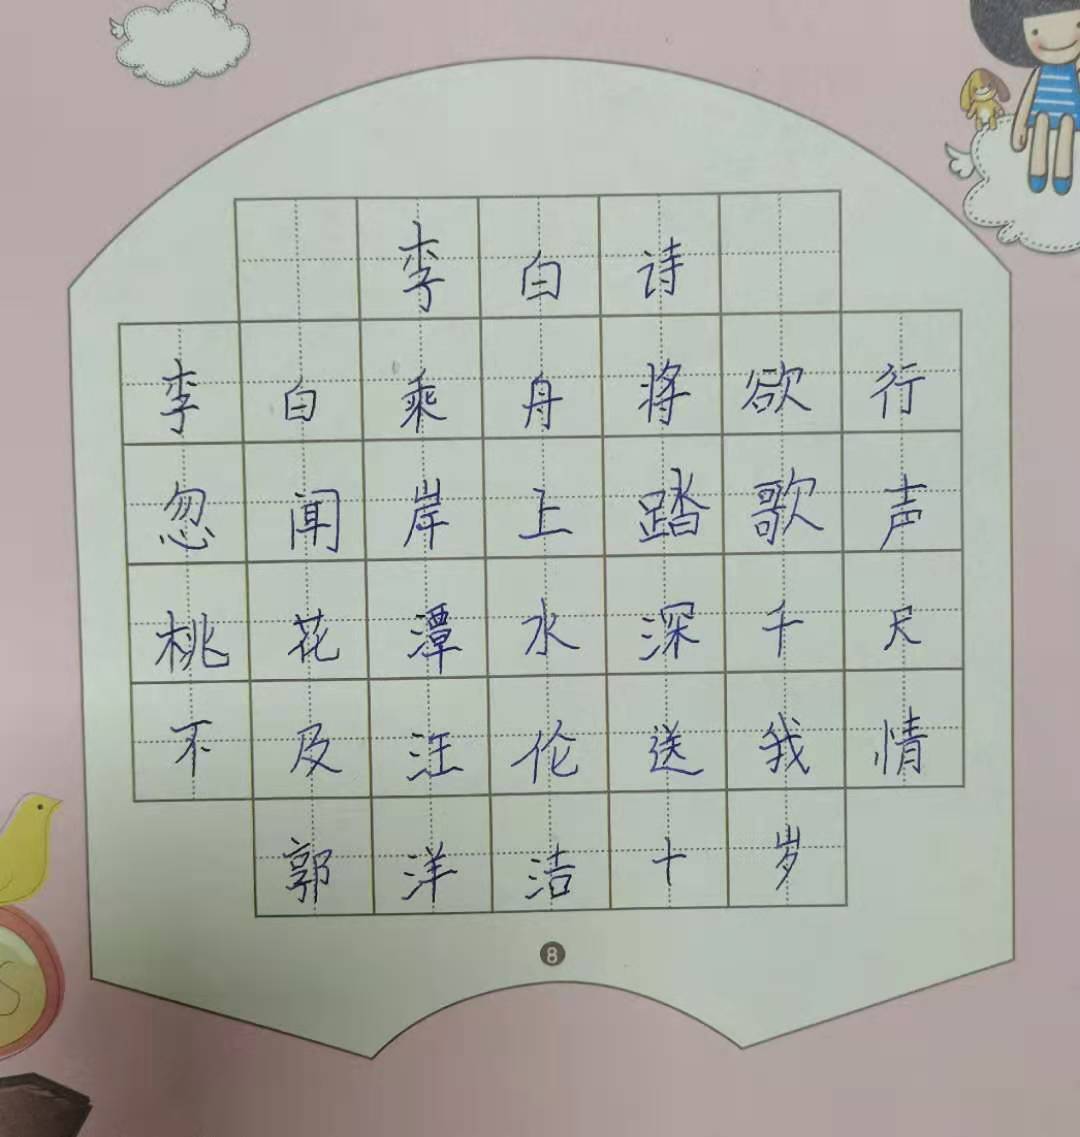 李白诗
李白乘舟将欲行
忽闻岸上踏歌声
桃花潭水深千尺
不及汪伦送我情
郭洋洁十岁
8